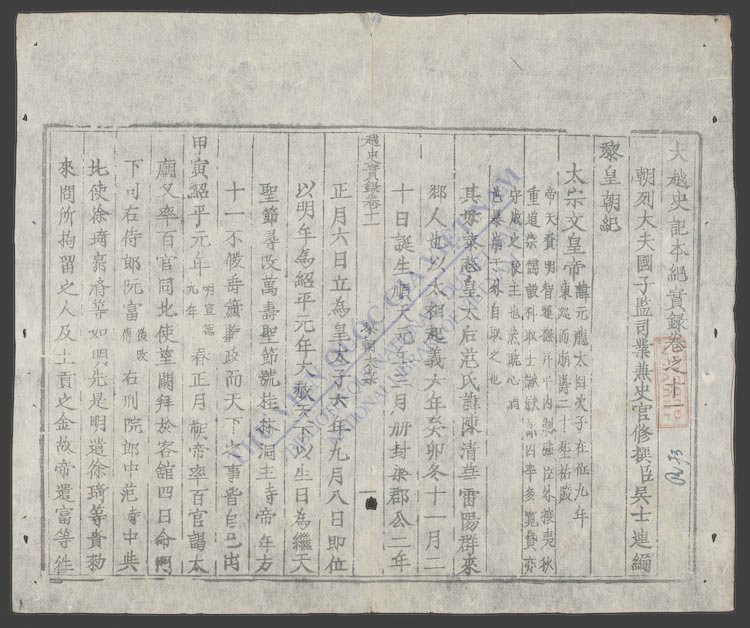 大越史記本紀實錄卷之十一
朝列大夫國子監司業兼史官修撰臣吳士連編
黎皇朝紀
太宗文皇帝
諱元龍太祖次子在位九年
東巡而崩壽二十塟祐陵
帝天資明智
重道崇儒設科取士
守成之
其母恭慈皇太后范氏諱陳清華雷陽群來
鄉人也以太祖起義六年癸卯冬十一月二
十日誕生順天元年三月册封梁郡公二年
越史實錄卷十一
正月六日立為皇太子六年九月八日即位
以明年為紹平元年大赦天下以生日為繼天
聖節尋改萬壽聖節號桂林洞主寺帝年方
十一不假垂簾聽政而天下之事皆自己出
甲寅紹平元年
明宣德
九年
春正月朔帝率百官謁太
廟又率百官同北使望闕拜於客館四日命門
下司右侍郎阮富
後改
傅
右刑院郎中范寺中與
北使徐琦郭濟等如明先是明遣徐琦等賫勑
來問所拘留之人及土貢之金故帝遣富等徃